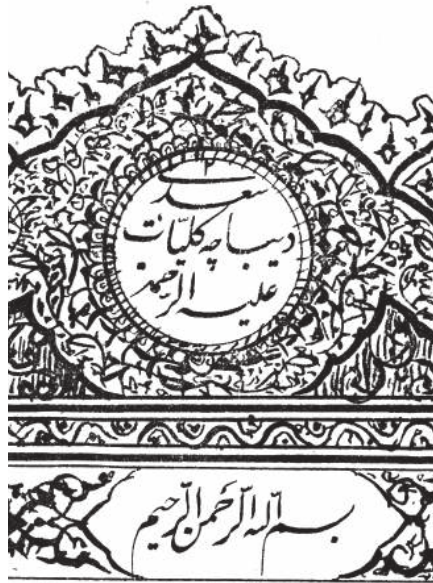 سعدی
دیباچه کلیات
علیه الرحمه
بسم الله الرحمن الرحیم